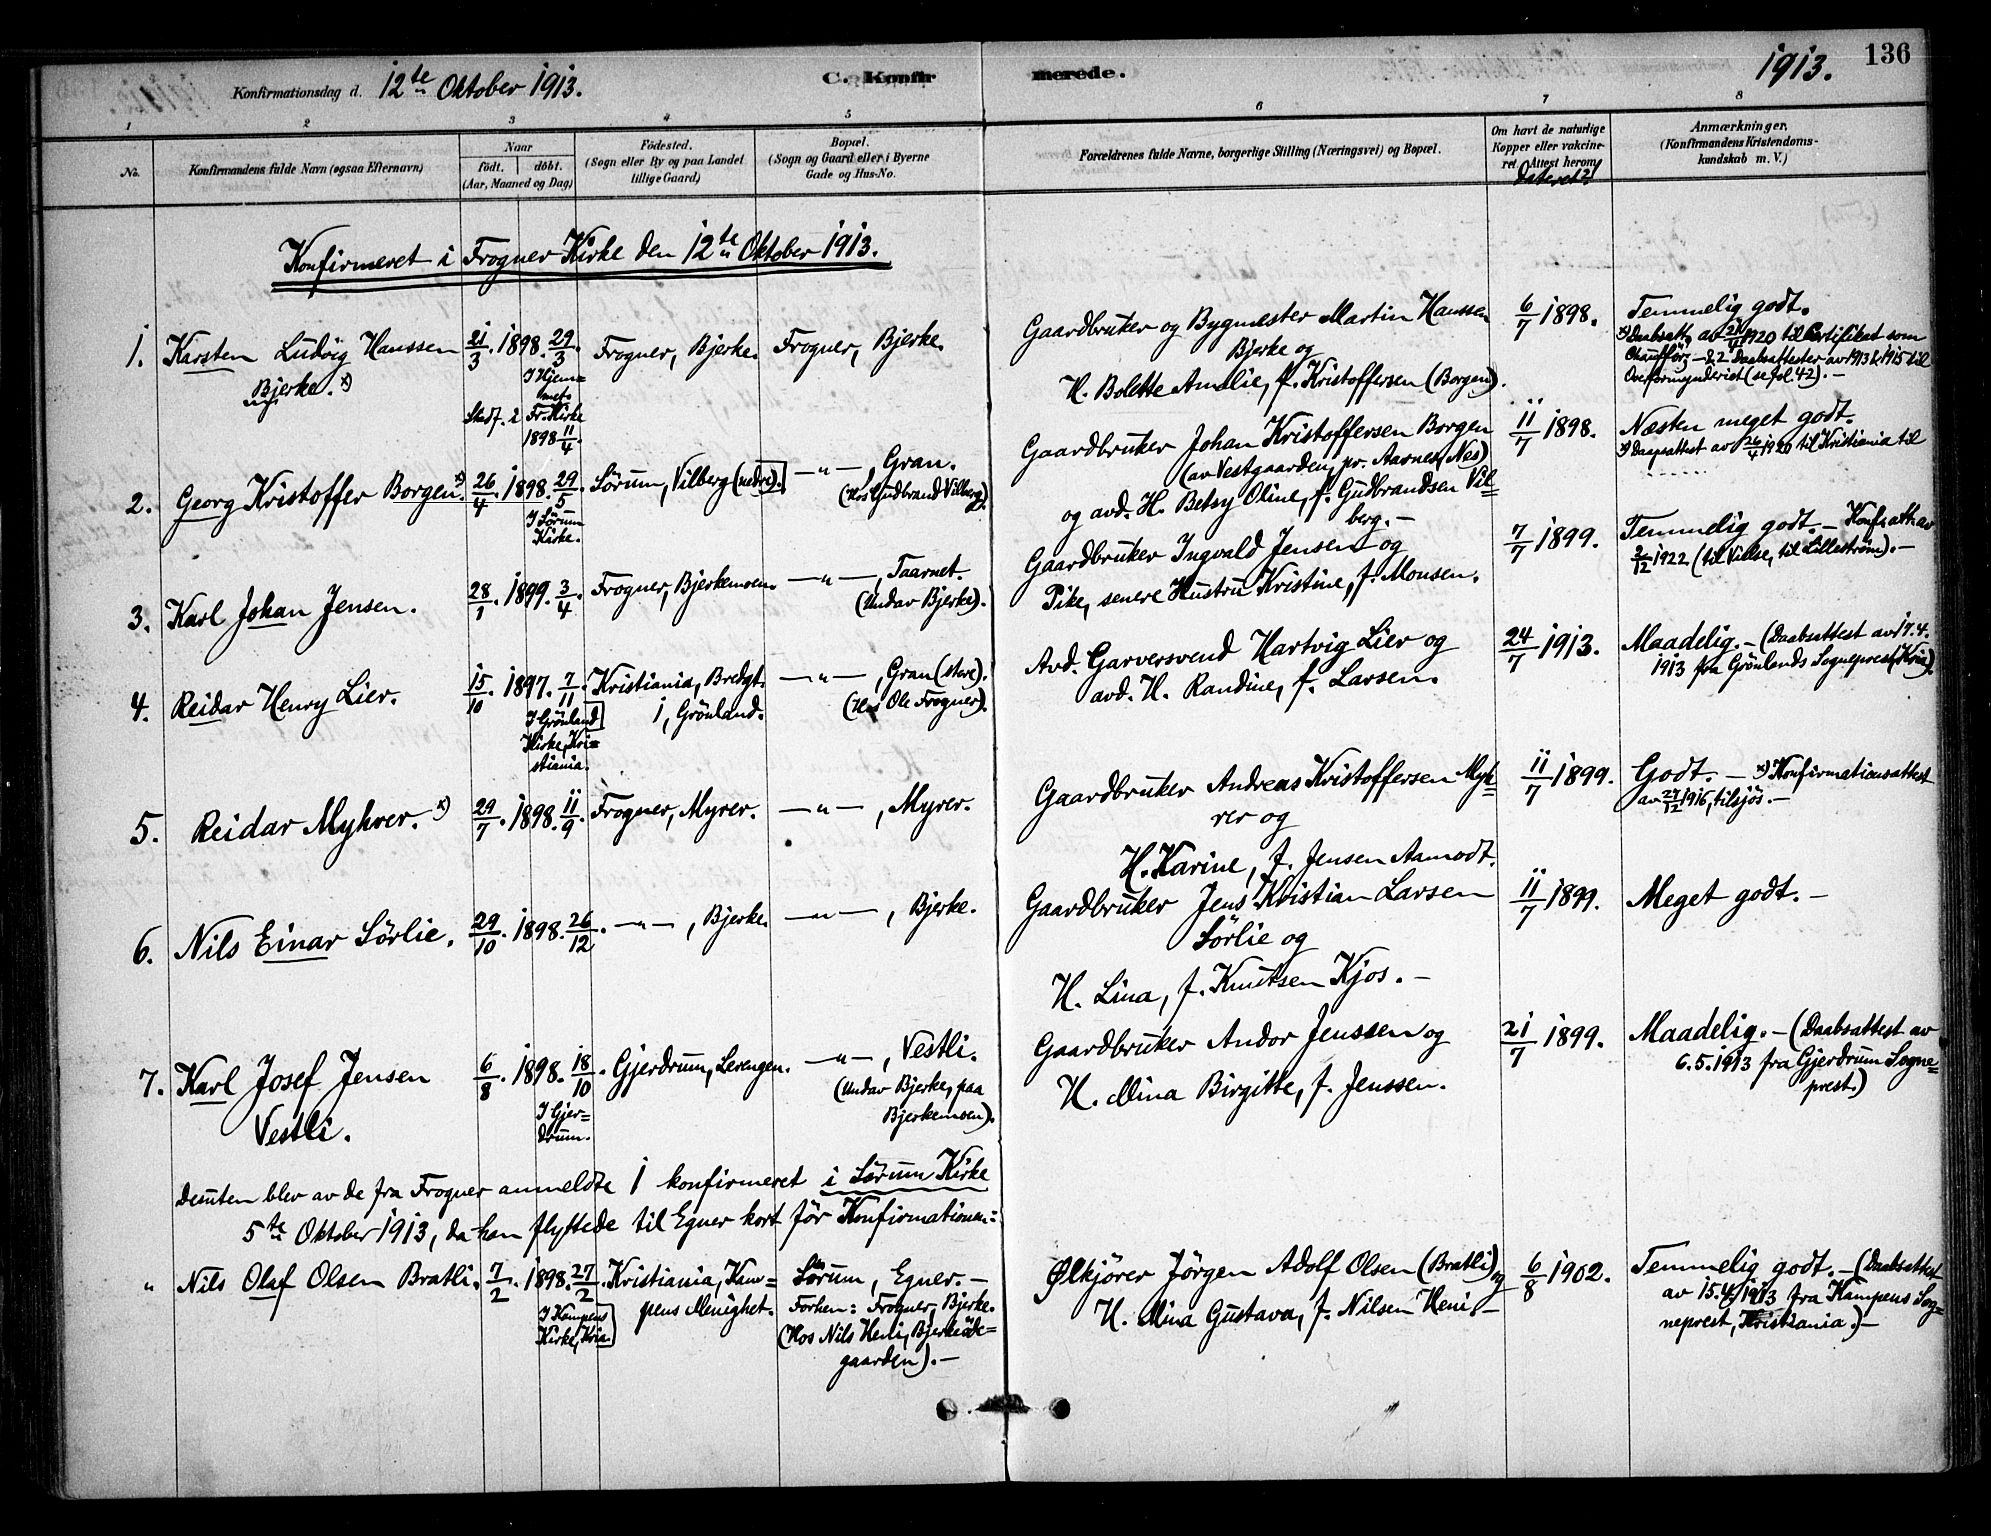 Konfirmationsdag d. 12te Oktober 1913. C. Konfirmerede. 1913. 136
1 2 3 4 5 6 7 8
No. Konfirmandens fulde Navn (ogsaa Efternavn)
Naar født. døbt. (Aar, Maaned og Dag)
Fødested. (Sogn eller By og paa Landet tillige Gaard)
Bopæl. (Sogn og Gaard eller i Byerne Gade og Hus-No.
Forældrenes fulde Navne, borgerlige Stilling (Næringsvei) og Bopæl.
Om havt de naturlige Kopper eller vakcineret. Attest herom dateret?
Anmærkninger. (Konfirmandens Kristendomskundskab m. V.)
Konfirmeret i Frogner Kirke den 12te Oktober 1913.
1. Karsten Ludvig Hanssen 21/3. 1898. 29/3. Frogner, Bjerke. Frogner, Bjerke.
Bjerke. x) I Hjemmet.
Stadf. i Fr. Kirke
1898 11/4.
Gaardbruker og Bygmester Martin Hanssen 6/7 1898. Temmelig godt.
Bjerke og
H. Bolette Amalie, f. Kristoffersen (Borgen).
x) Daabsatt. av 1920 til Certifikat som
Chaufför, — & 2 Daabsattester av 1913 & 1915 til
Overformynderiet (se fol. 42). —
2. Georg Kristoffer Borgen. x) 26/4. 1898. 29/5. Sörum, Vilberg (nedre). —"—, Gran.
I Sörum (Hos Gudbrand Vilberg).
Kirke.
Gaardbruker Johan Kristoffersen Borgen 11/7 1898. Næsten meget godt.
(av Vestgaarden, pr. Aarnes, Nes) x) Daapsattest av 26/4 1920 til Kristiania til
.....
og avd. H. Betsy Oline, f. Gudbrandsen Vil=
berg. —
3. Karl Johan Jensen. 28/1. 1899. 3/4. Frogner, Bjerkemoen. —"—, Taarnet.
(Under Bjerke).
Gaardbruker Ingvald Jensen og 7/7 1899. Temmelig godt. — Konf.att. av
Pike, senere Hustru Kristine, f. Monsen. 2/12 1922 (til Vielse, til Lilleström). —
4. Reidar Henry Lier. 15/10. 1897. 7/11. Kristiania, Bredgt. —"—, Gran (store).
I Grönland 1, Grönland. (Hos Ole Frogner).
Kirke, Kri=
stiania.
Avd. Garversvend Hartvig Lier og 24/7 1913. Maadelig. — (Daabsattest av 17.4.
avd. H. Randine, f. Larsen. 1913 fra Grönlands Sogneprest (Kria).
5. Reidar Myhrer. x) 29/7. 1898. 11/9. Frogner, Myrer. —"—, Myrer.
Gaardbruker Andreas Kristoffersen Myh= 11/7 1899. Godt. — x) Konfirmationsattest
rer og av 27/12 1916, tilsjös. —
H. Karine, f. Jensen Aamodt.
6. Nils Einar Sörlie. 29/10. 1898. 26/12. —"—, Bjerke. —"—, Bjerke.
Gaardbruker Jens Kristian Larsen 11/7 1899. Meget godt. —
Sörlie og
H. Lina, f. Knutsen Kjos. —
7. Karl Josef Jensen 6/8. 1898. 18/10. Gjerdrum, Lerengen. —"—, Vestli.
Vestli. I Gjer= (Under Bjerke, paa
drum. Bjerkemoen).
Gaardbruker Andor Jenssen og 21/7 1899. Maadelig. — (Daabsattest av
H. Mina Birgitte, f. Jenssen. 6.5.1913 fra Gjerdrum Sogne=
prest.)
Desuten blev av de fra Frogner anmeldte 1 konfirmeret i Sörum Kirke
5te Oktober 1913, da han flyttede til Egner kort för Konfirmationen:
" Nils Olaf Olsen Bratli. 7/2. 1898. 27/2. Kristiania, Kam= Sörum, Egner. —
I Kampens pens Menighet. Forhen: Frogner, Bjerke.
Kirke, Kria (Hos Nils Heni, Bjerkeöde=
gaarden). —
Ølkjörer Jörgen Adolf Olsen (Bratli) og 6/8 1902. Temmelig godt. — (Daabsattest
H. Mina Gustava, f. Nilsen Heni — av 15.4.1913 fra Kampens Sog=
neprest, Kristiania). —